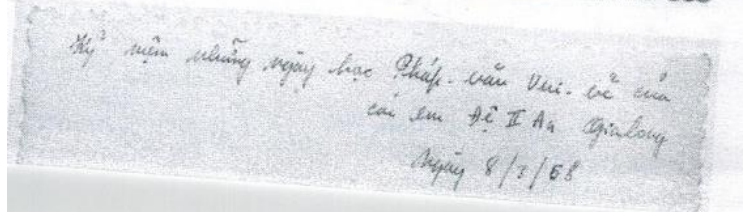 Kỷ niệm những ngày học Pháp-văn vui-vẻ của
các em Đệ II A4 Gialong
Ngày 8/7/68